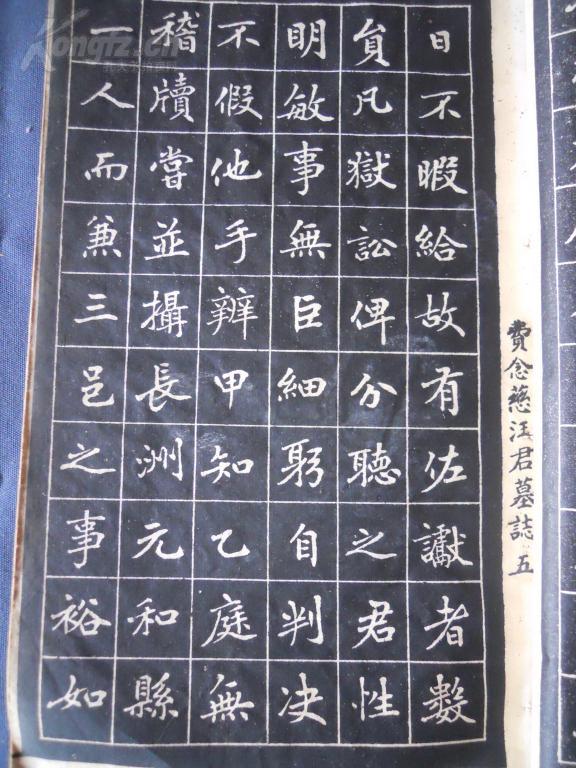 日不暇給故有佐讞者數
貟凡獄訟俾分聽之君性
明敏事無巨細躬自判决
不假他手辦甲知乙庭無
稽牘嘗並攝長洲元和縣
一人而兼三邑之事裕如
費念慈汪君墓誌 五
Kongfz.cn